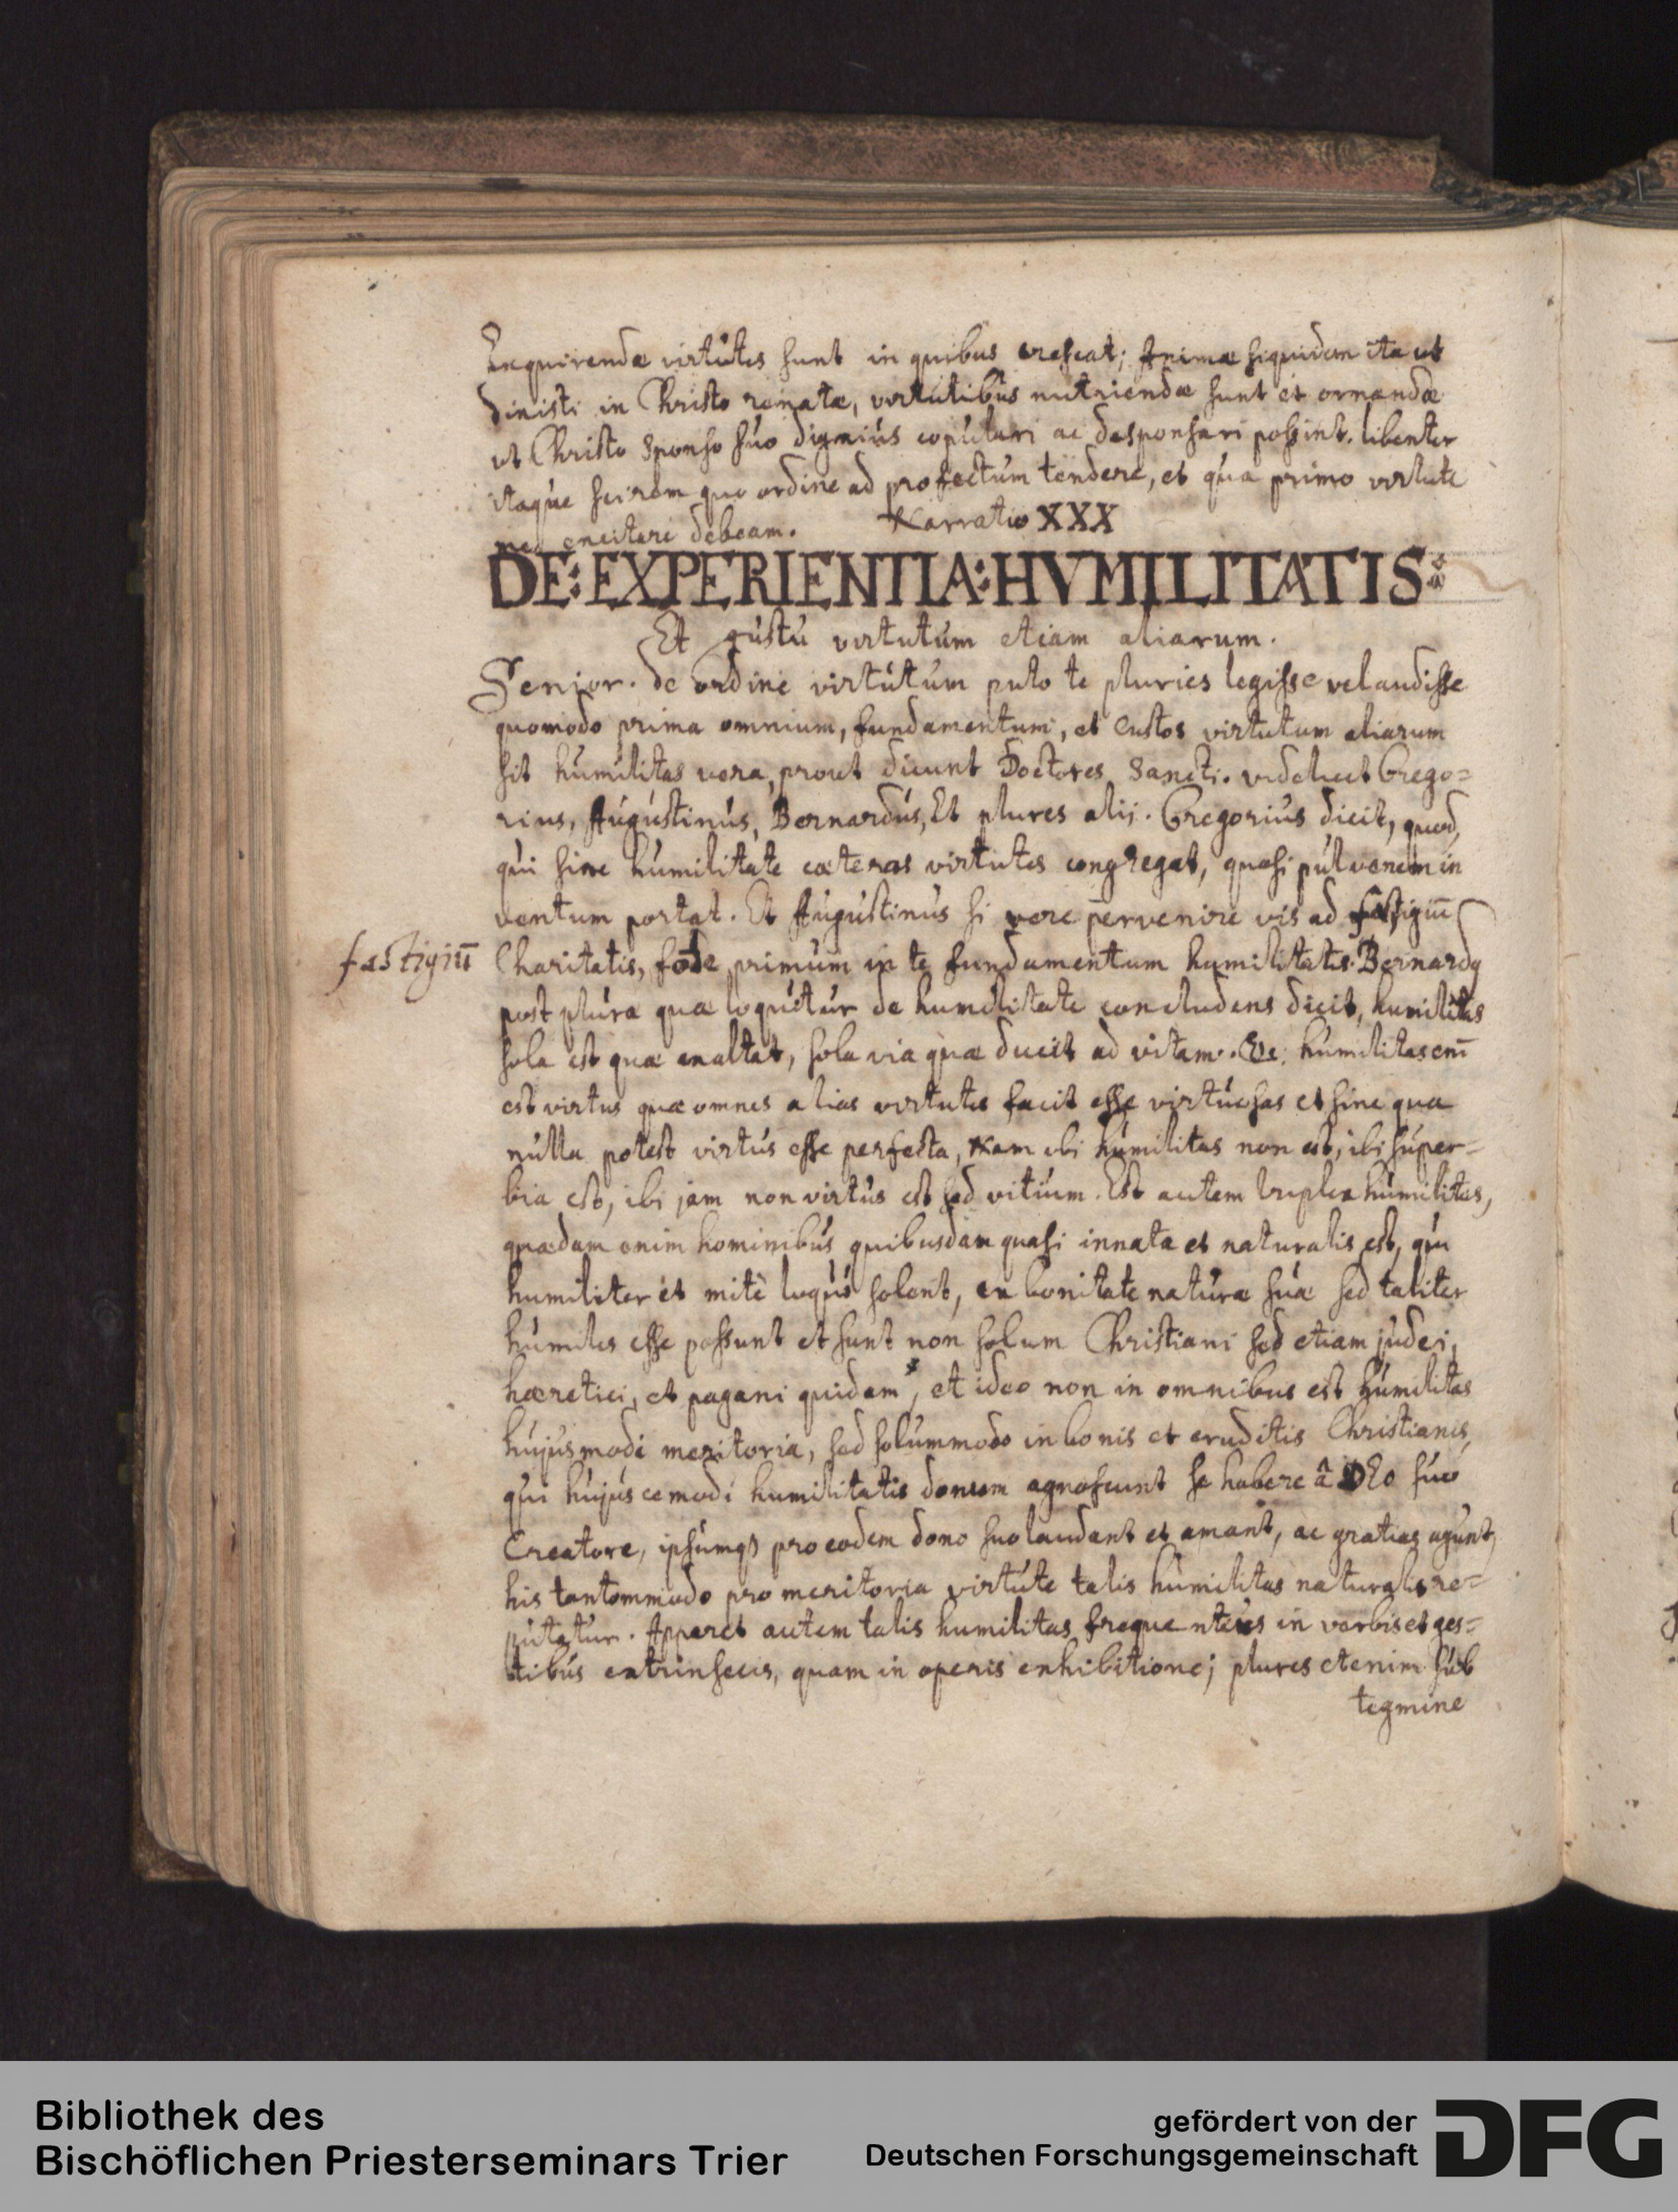 Exquirendæ virtutes sunt in quibus crescat; Animæ siquidem ita ut
dixisti in Christo renatæ, virtutibus nutriendæ sunt et ornandæ
ut Christo Sponso suo dignius copulari ac desponsari possint. libenter
itaque scirem quo ordine ad profectum tendere, et qua primo virtute
me exercitare debeam. Narratio XXX
DE: EXPERIENTIA: HVMILITATIS
Et gustu virtutum etiam aliarum.
Senior. de ordine virtutum puto te pluries legisse vel audisse
quomodo prima omnium, fundamentum, et Custos virtutum aliarum
sit humilitas vera, prout dicunt Doctores Sancti. videlicet Grego=
rius, Augustinus, Bernardus, Et plures alij. Gregorius dicit, quod,
qui sine humilitate cæteras virtutes congregat, quasi pulverem in
ventum portat. Et Augustinus si vere pervenire vis ad fastigiū
fastigiū
Charitatis, fode primum in te fundamentum humilitatis. Bernardq
post plura quæ loquitur de humilitate concludens dicit, humilitas
sola est quæ exaltat, sola via quæ ducit ad vitam. &c: humilitas em̄
est virtus quæ omnes alias virtutes facit esse virtuosas et sine qua
nulla potest virtus esse perfecta, Nam ubi humilitas non est, ibi super=
bia est, ibi jam non virtus est sed vitium. Est autem truplex humilitas,
quædam enim hominibus quibusdam quasi innata et naturalis est, qui
humiliter et mite loqui solent, ex bonitate naturæ suæ sed taliter
humiles esse possunt et sunt non solum Christiani sed etiam judei,
hæretici, et pagani quidam, et ideo non in omnibus est humilitas
hujusmodi meritoria, sed solummodo in bonis et eruditis Christianis,
qui hujuscemodi humilitatis donum agnoscunt se habere â DEo suo
Creatore, ipsumqz pro eodem dono suo laudant et amant, ac gratias agunt,
his tantommodo pro meritoria virtute talis humilitas naturalis re=
putatur. Apparet autem talis humilitas frequentius in verbis et ges=
tibus extrinsecis, quam in operis exhibitione; plures etenim sub
tegmine
Bibliothek des
Bischöflichen Priesterseminars Trier
gefördert von der
Deutschen Forschungsgemeinschaft
DFG